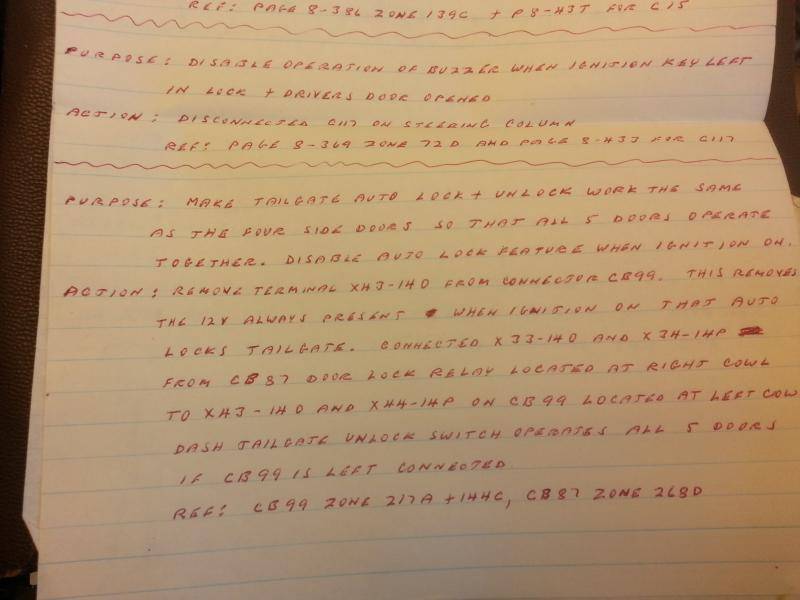 REF: PAGE 8-386 ZONE 139C + P 8-43J FOR C15
PURPOSE: DISABLE OPERATION OF BUZZER WHEN IGNITION KEY LEFT
IN LOCK + DRIVERS DOOR OPENED
ACTION: DISCONNECTED C117 ON STEERING COLUMN
REF: PAGE 8-369 ZONE 72D AND PAGE 8-43J FOR C117
PURPOSE: MAKE TAILGATE AUTO LOCK + UNLOCK WORK THE SAME
AS THE FOUR SIDE DOORS SO THAT ALL 5 DOORS OPERATE
TOGETHER. DISABLE AUTO LOCK FEATURE WHEN IGNITION ON.
ACTION: REMOVE TERMINAL X43-14O FROM CONNECTOR CB99. THIS REMOVES
THE 12V ALWAYS PRESENT WHEN IGNITION ON THAT AUTO
LOCKS TAILGATE. CONNECTED X33-14O AND X34-14P
FROM CB87 DOOR LOCK RELAY LOCATED AT RIGHT COWL
TO X43-14O AND X44-14P ON CB99 LOCATED AT LEFT COW
DASH TAILGATE UNLOCK SWITCH OPERATES ALL 5 DOORS
IF CB99 IS LEFT CONNECTED
REF: CB99 ZONE 217A + 144C, CB87 ZONE 268D